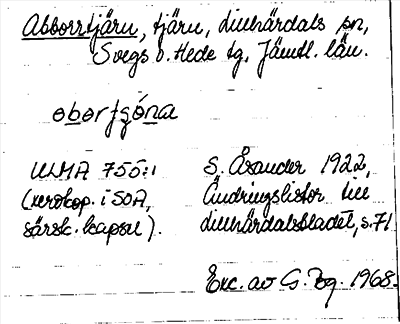 Abborrtjärn, tjärn, Lillhärdals sn,
Svegs o. Hede tg, Jämtl. län.
oborțșóna
ULMA 755:1
(xerokop. i SOA,
särsk. kapsel).
S. Åsander 1922,
Ändringslistor till
Lillhärdalsbladet, s.71
Exc. av G. Bg. 1968.